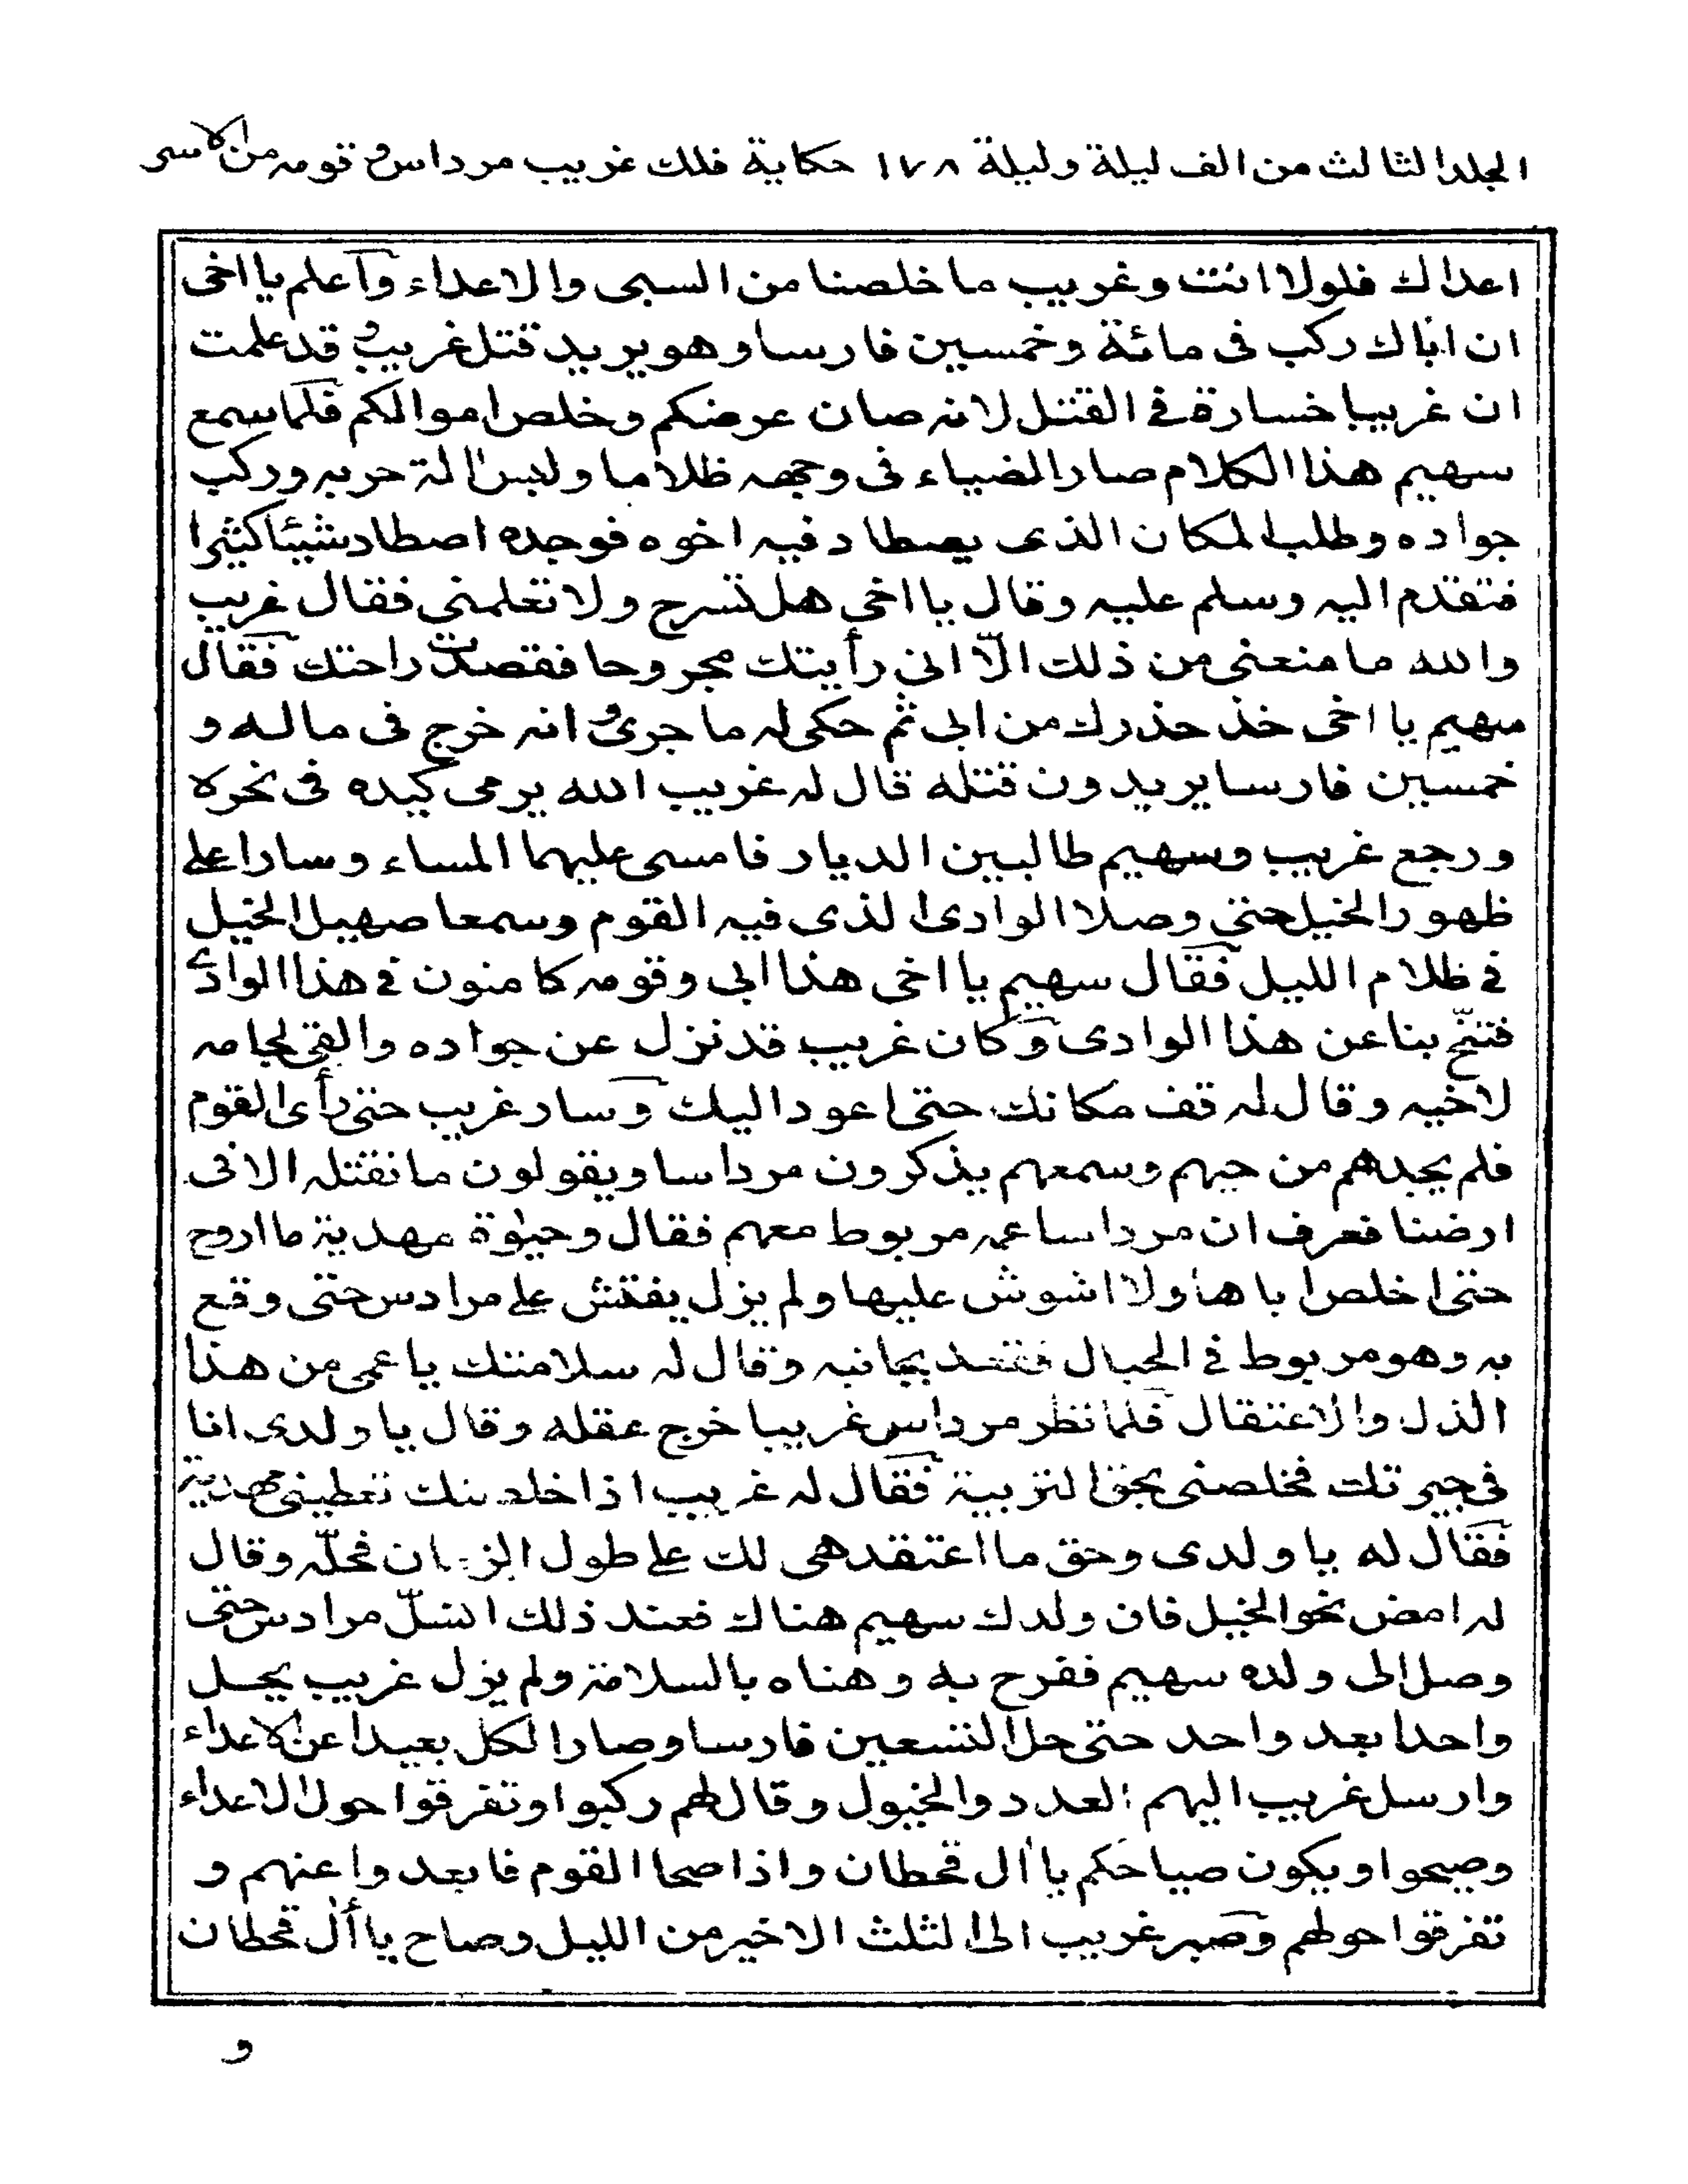 المجلد الثالث من الف ليلة وليلة ١٧٨ حكاية فلك غريب مرداس و قومه من الاسر
اعداك فلولا انت وغريب ما خلصنا من السبى والاعداء واعلم يا اخى
ان اباك ركب فى مائة وخمسين فارسا وهو يريد قتل غريب و قد علمت
ان غريبا خسارة فى القتل لانه صان عرضكم وخلص اموالكم فلما سمع
سهيم هذا الكلام صار الضياء فى وجهه ظلاما ولبس آلة حربه وركب
جواده وطلب المكان الذى يصطاد فيه اخوه فوجده اصطاد شيئا كثيرا
فتقدم اليه وسلم عليه وقال يا اخى هل تسرح ولا تعلمنى فقال غريب
والله ما منعنى من ذلك الّا انى رأيتك مجروحا فقصدت راحتك فقال
سهيم يا اخى خذ حذرك من ابى ثم حكى له ما جرى و انه خرج فى مائه و
خمسين فارسا يريدون قتله قال له غريب الله يرمى كيده فى نحره
ورجع غريب وسهيم طالبين الديار فامسى عليهما المساء وسارا على
ظهور الخيل حتى وصلا الوادى الذى فيه القوم وسمعا صهيل الخيل
فى ظلام الليل فقال سهيم يا اخى هذا ابى وقومه كامنون فى هذا الوادى
فتنحّ بنا عن هذا الوادى وكان غريب قد نزل عن جواده والقى لجامه
لاخيه وقال له قف مكانك حتى اعود اليك وسار غريب حتى رأى القوم
فلم يجدهم من حيهم وسمعهم يذكرون مرداسا ويقولون ما نقتله الا فى
ارضنا فعرف ان مرداسا عمه مربوط معهم فقال وحيوة مهدية ما اروح
حتى اخلص اباها ولا اشوش عليها ولم يزل يفتش على مرادس حتى وقع
به وهو مربوط فى الحبال فقعد بجانبه وقال له سلامتك يا عمى من هذا
الذل والاعتقال فلما نظر مرداس غريبا خرج عقله وقال يا ولدى انا
فى جيرتك فخلصنى بحق التربية فقال له غريب اذا خلصتك تعطينى مهدية
فقال له يا ولدى وحق ما اعتقد هى لك على طول الزمان فحلّه وقال
له امض نحو الخيل فان ولدك سهيم هناك فعند ذلك انسلّ مرادس حتى
وصل الى ولده سهيم ففرح به وهناه بالسلامة ولم يزل غريب يحل
واحدا بعد واحد حتى حل التسعين فارسا وصار الكل بعيدا عن الاعداء
وارسل غريب اليهم العدد والخيول وقال لهم ركبوا وتفرقوا حول الاعداء
وصيحوا ويكون صياحكم يا آل قحطان واذا صحا القوم فابعدوا عنهم و
تفرقوا حولهم وصبر غريب الى الثلث الاخير من الليل وصاح يا آل قحطان
و